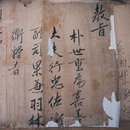 教旨
朴世重爲嘉善
大夫行忠佐衛
副司果兼羽林
衛將者